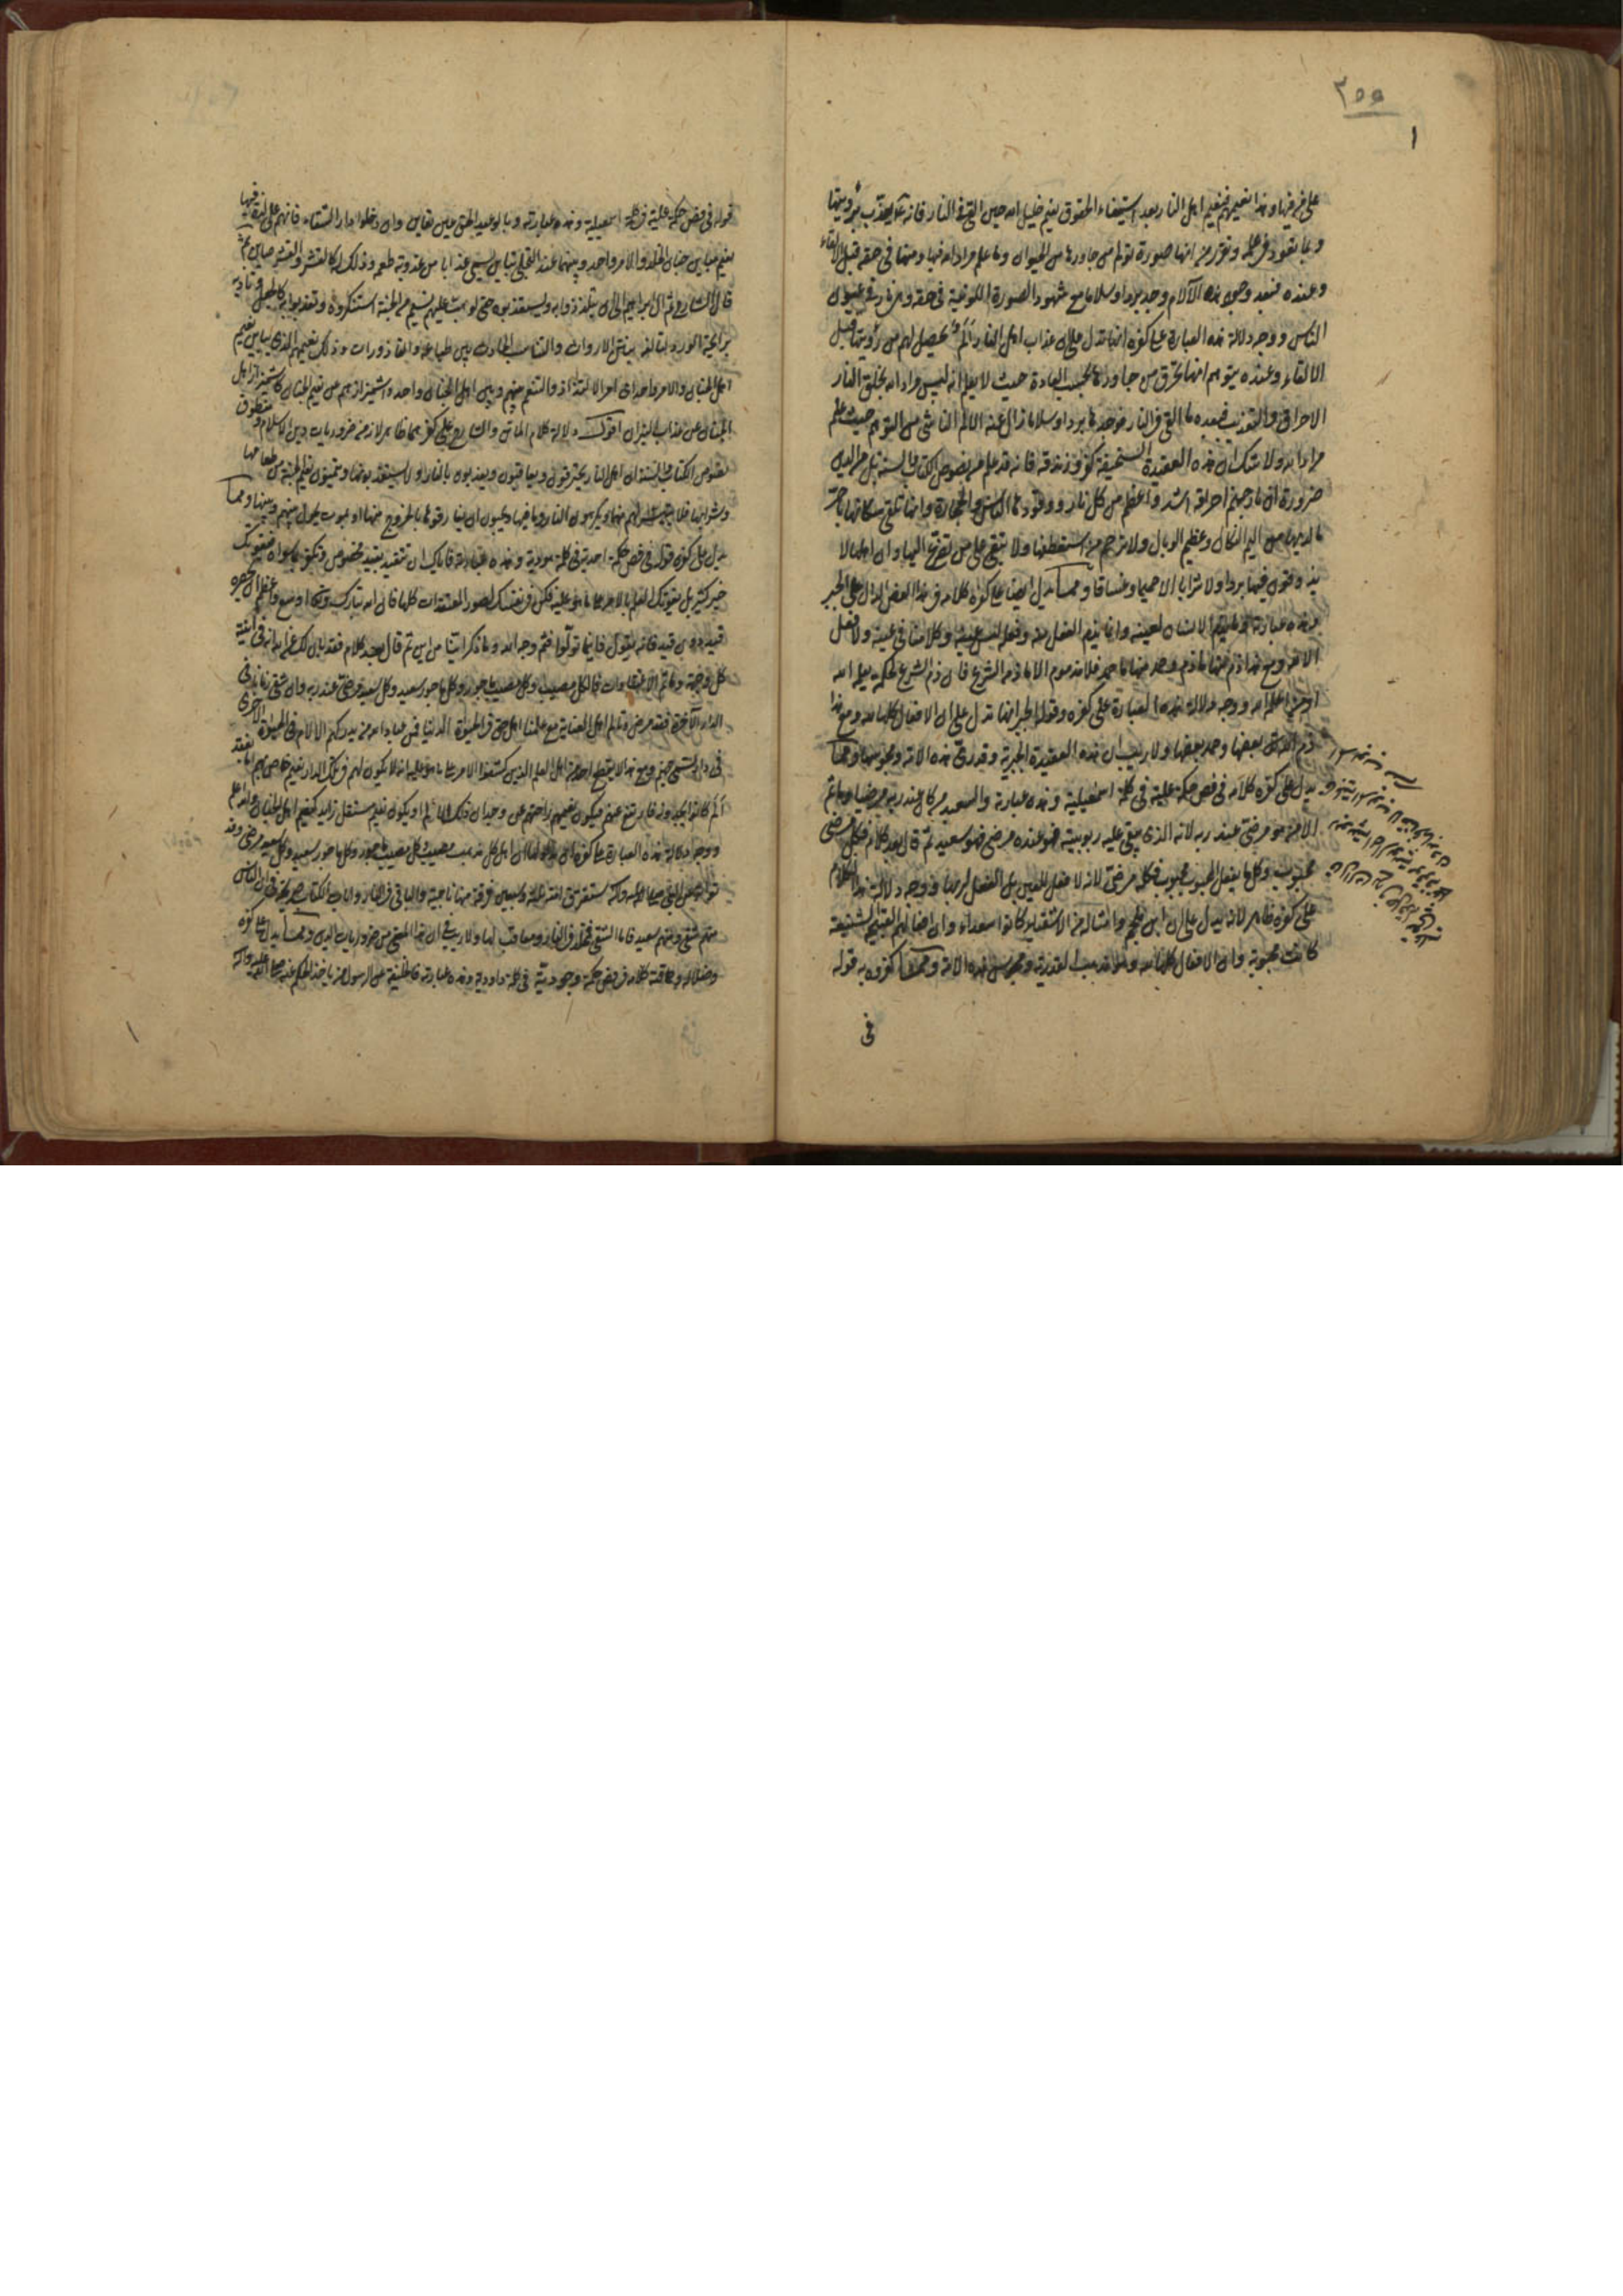 ٢٥٥
١
على من فيها وهذا نعيمهم فنعيم اهل النار بعد استيفاء الحقوق نعيم خليل الله حين القي في النار فانه عم يعذب برؤيتها
وبما تعود في علمه وتقرر من انها صورة تولم من جاورها من الحيوان وما علم مراد الله فيها ومنها في حقه قبل الالقاء
وعنده فبعد وجود هذه الآلام وجد بردا وسلاما مع شهود الصورة اللونية في حقه وهي نار في عيون
الناس ووجه دلالة هذه العبارة على كفره انها تدل على ان عذاب اهل النار ألم يحصل لهم من رؤيتها قبل
الالقاء وعنده بتوهم انها تحرق من جاورها بحسب العادة حيث لا يعلم انه ليس مراد الله بخلق النار
الاحراق والتعذيب فبعد ما القي في النار فوجدها بردا وسلاما زال عنه الالم الناشي من التوهم حيث علم
مراد الله ولا شك ان هذه العقيدة السخيفة كفر وزندقة فانه قد علم من نصوص الكتاب والسنة بل من الدين
ضرورة ان نار جهنم احراقه اشد واعظم من كل نار ووقودها الناس والحجارة وانها تلقى سكانها باحر
ما لديها من اليم النكال وعظيم الوبال ولا ترحم من استعطفها ولا تبقي على من تضرع اليها وان اهلها لا
يذوقون فيها بردا ولا شرابا الا حميما وغساقا ومما يدل ايضا على كفره كلامه في هذا الفص الدال على الجبر
وهذه عبارته الانسان لعينه وانما يذم الفعل منه وفعله ليس عينه وكلامنا في عينه ولا فعل
الا لله ومع هذا ذم منها ما ذم وحمد منها ما حمد فلا مذموم الا ما ذمه الشرع فان ذم الشرع لحكمة يعلمها الله
او من اعلمه الله ووجه دلالة هذه العبارة على كفره وقوله بالجبر انها تدل على ان الافعال كلها لله ومع هذا
ذم الله بعضها وحمد بعضها ولا ريب ان هذه العقيدة الجبرية وقدرية هذه الامة ومجوسها ومما
يدل على كفره كلامه في فص حكمة علية في كلمة اسمعيلية وهذه عبارته والسعيد من كان عند ربه مرضيا وما ثم
الا من هو مرضي عند ربه لانه الذي يبقى عليه ربوبيته فهو عنده مرضي فهو سعيد ثم قال بعد كلام فكل مرضي
محبوب وكل ما يفعل المحبوب محبوب فكله مرضي لانه لا فعل للعين بل الفعل لربها ووجه دلالة هذا الكلام
على كفره ظاهر لانه يدل على ان ابن ملجم وامثاله من الاشقياء كانوا سعداء وان افعالهم القبيحة الشنيعة
كانت محبوبة وان الافعال كلها لله وهذا مذهب القدرية ومجوس هذه الامة ومما كفروه به قوله
في
قوله في فص حكمة علية في كلمة اسمعيلية وهذه عبارته وما لوعيد الحق عين تعاين وان دخلوا دار الشقاء فانهم على لذة فيها
نعيم مباين جنان الخلد والامر واحد وبينهما عند التجلي تباين يسمى عذابا من عذوبة طعمه وذلك له كالقشر والقشر صاين ثم
قال الشارح ثم آل امرهم الى ان يتلذذوا به ويستعذبوه حتى لو هبت عليهم نسيم من الجنة استكرهوه وتعذبوا به كالجعل وتأذيه
برائحة الورد لتألفه بنتن الارواث والتناسب الحادث بين طباعه والقاذورات وذلك نعيمهم الذي يباين نعيم
اهل الجنان والامر واحد اي امر الالتذاذ والتنعم بينهم وبين اهل الجنان واحد واشمئزازهم من نعيم الجنان كاشمئزاز اهل
الجنان عن عذاب النيران اقول دلالة كلام الماتن والشارح على كفرهما ظاهر لازمه ضروريات دين الاسلام ومنطوق
نصوص الكتاب والسنة ان اهل النار يحترقون ويعاقبون ويعذبون بالنار ولا يستعذبونها ويتمنون نعيم الجنة من طعامها
وشرابها فلا يتيسر لهم منها ويكرهون النار وما فيها ويحبون ان يفارقوها بالخروج عنها او بموت يحول بينهم وبينها ومما
يدل على كفره قوله في فص حكمة احدية في كلمة هودية وهذه عبارته فاياك ان تتقيد بعقد مخصوص وتكفر بما سواه فيفوتك
خير كثير بل يفوتك العلم بالامر على ما هو عليه فكن في نفسك لصور المعتقدات كلها فان الله تبارك وتعالى اوسع واعظم ان يحصره
عقد دون عقد فانه يقول فاينما تولوا فثم وجه الله وما ذكر اينا من اين ثم قال بعد كلام فقد بان لك عن الله انه في اينية
كل وجهة وما ثم الا اعتقادات فالكل مصيب وكل مصيب ماجور وكل ماجور سعيد وكل سعيد مرضي عند ربه وان شقي زمانا في
الدار الآخرة فقد مرض وتألم اهل العناية مع علمنا اهل حق في الحيوة الدنيا فمن عباد الله من يدركهم الالام في الحيوة الاخرى
في دار تسمى جهنم ومع هذا لا يقطع احد من اهل العلم الذين كشفوا الامر على ما هو عليه انه لا يكون لهم في تلك الدار نعيم خاص بهم اما بفقد
الم كانوا يجدونه فارتفع عنهم فيكون نعيمهم راحتهم عن وجدان ذلك الالم او يكون نعيم مستقل زايد كنعيم اهل الجنان والله اعلم
ووجه دلالة هذه العبارة على كفره ان اهل كل مذهب مصيب وكل مصيب ماجور وكل ماجور سعيد وكل سعيد مرضي وقد
تواتر عن النبي صلى الله عليه وآله ستفترق امته ثلثة وسبعين فرقة منها ناجية والباقي في النار وايات الكتاب صريحة في ان الناس
منهم شقي ومنهم سعيد فاما الشقي فمخلد في النار ومعاقب بها ولا ريب في ان هذا المعنى من ضروريات الدين ومما يدل على كفره
وضلاله وحماقته كلامه في فص حكمة وجودية في كلمة داودية وهذه عبارته فالخليفة عن الرسول من ياخذ الحكم عنه صلى الله عليه وآله